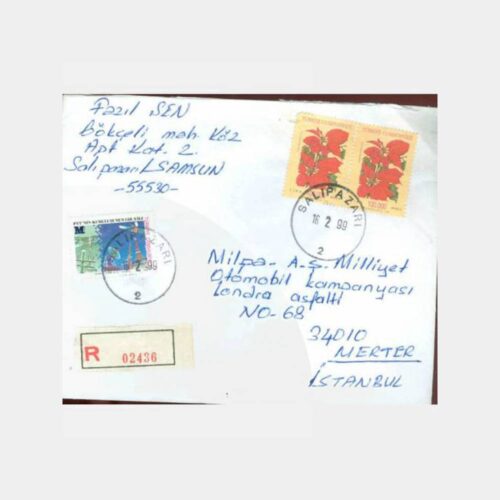 Fazıl ŞEN
Gökçeli mah. Köz
Apt Kat. 2.
Salıpazarı/SAMSUN
-55530-
SALIPAZARI
16 2 99
2
130.000
M
SALIPAZARI
2 99
2
Milpa. A.Ş. Milliyet
Otomobil kampanyası
Londra asfaltı
NO-68
34010
MERTER
İSTANBUL
R 02436